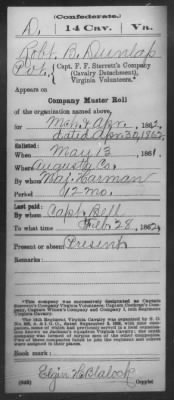 (Confederate.)
D. 14 Cav. Va.
Robt. B. Dunlap
Pvt., Capt. F. F. Sterrett's Company
(Cavalry Detachment),
Virginia Volunteers.*
Appears on
Company Muster Roll
of the organization named above,
for Mch. & Apr., 1862,
dated Apr. 30, 1862.
Enlisted:
When May 13, 1861.
Where Augusta Co.
By whom Maj. Harman
Period 12 mo.
Last paid:
By whom Capt. Bell
To what time Feb. 28, 1862.
Present or absent Present
Remarks:
*This company was successively designated as Captain
Sterrett's Company Virginia Volunteers,
Book mark:
(642) Elijah H. Blalock
Copyist.